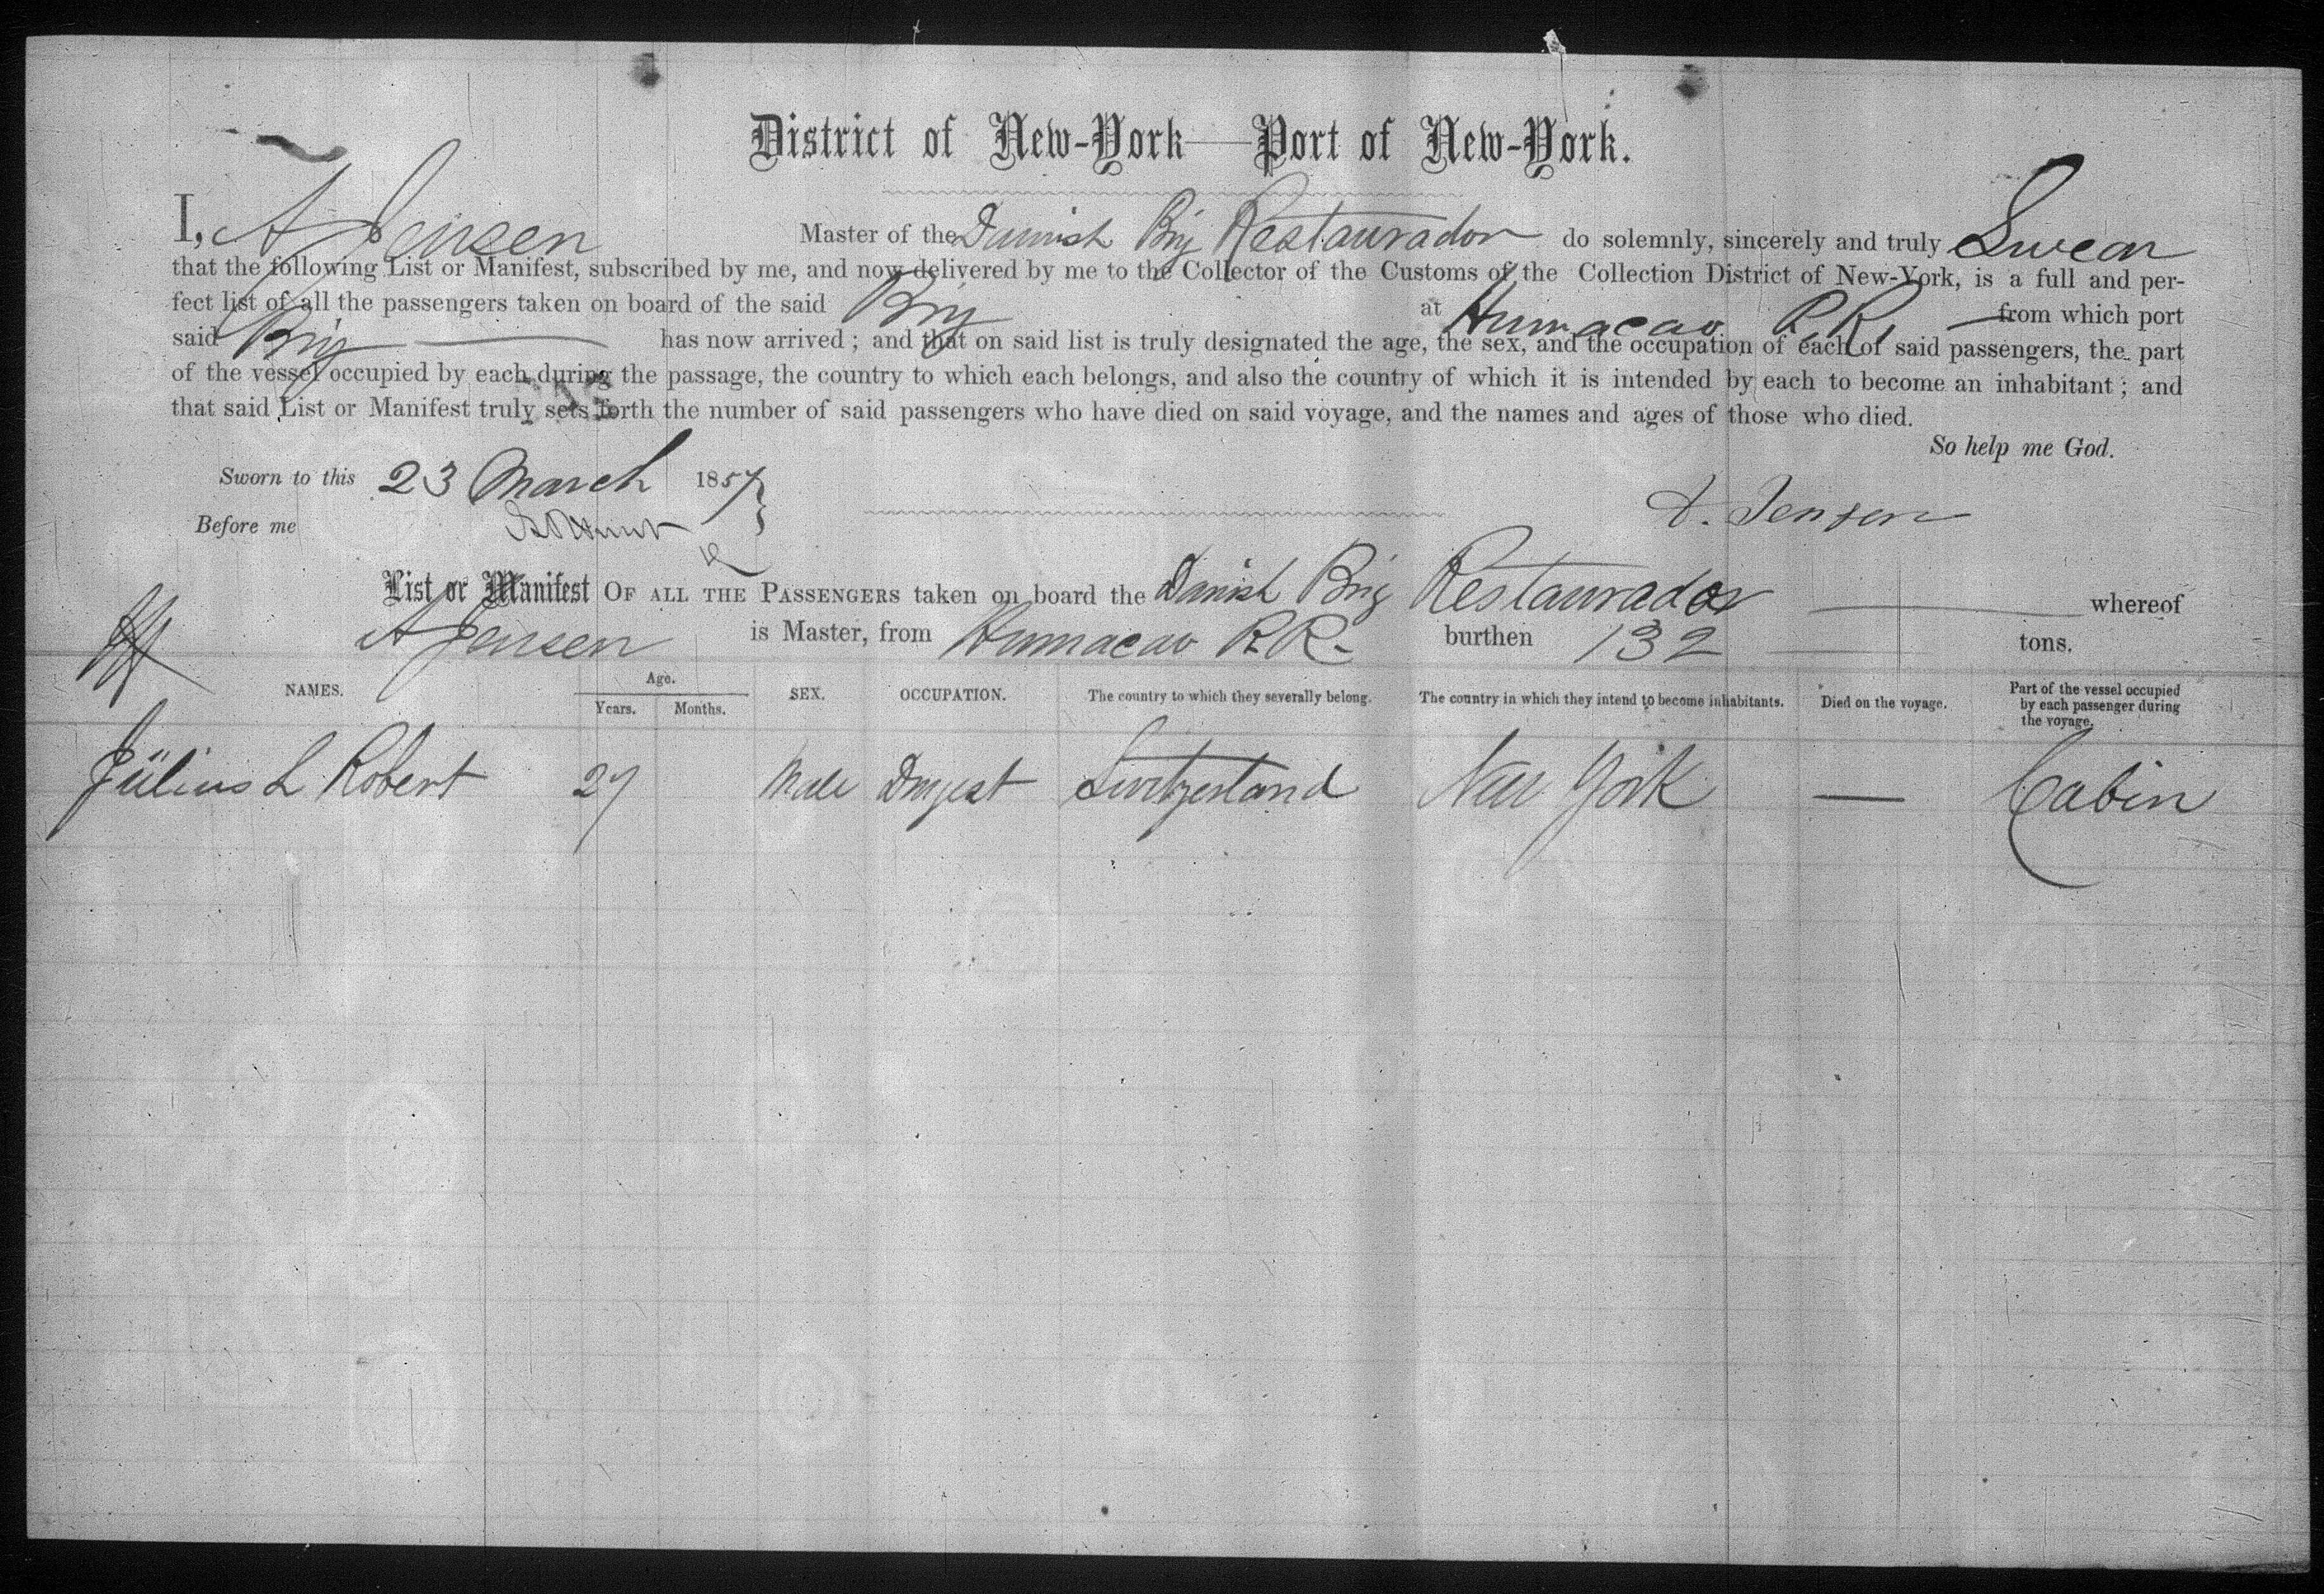 District of New-York—Port of New-York.
I, A Jensen Master of the Danish Brig Restaurador do solemnly, sincerely and truly Swear
that the following List or Manifest, subscribed by me, and now delivered by me to the Collector of the Customs of the Collection District of New-York, is a full and per-
fect list of all the passengers taken on board of the said Brig at Humacao P.R. from which port
said Brig has now arrived; and that on said list is truly designated the age, the sex, and the occupation of each of said passengers, the part
of the vessel occupied by each during the passage, the country to which each belongs, and also the country of which it is intended by each to become an inhabitant; and
that said List or Manifest truly sets forth the number of said passengers who have died on said voyage, and the names and ages of those who died.
So help me God.
Sworn to this 23 March 1857
A. Jensen
Before me
List or Manifest OF ALL THE PASSENGERS taken on board the Danish Brig Restaurador whereof
A Jensen is Master, from Humacao P.R. burthen 132 tons.
NAMES. Age. Years. Months. SEX. OCCUPATION. The country to which they severally belong. The country in which they intend to become inhabitants. Died on the voyage. Part of the vessel occupied by each passenger during the voyage.
Jülius L Robert 27 Male Drugest Switzerland New York — Cabin